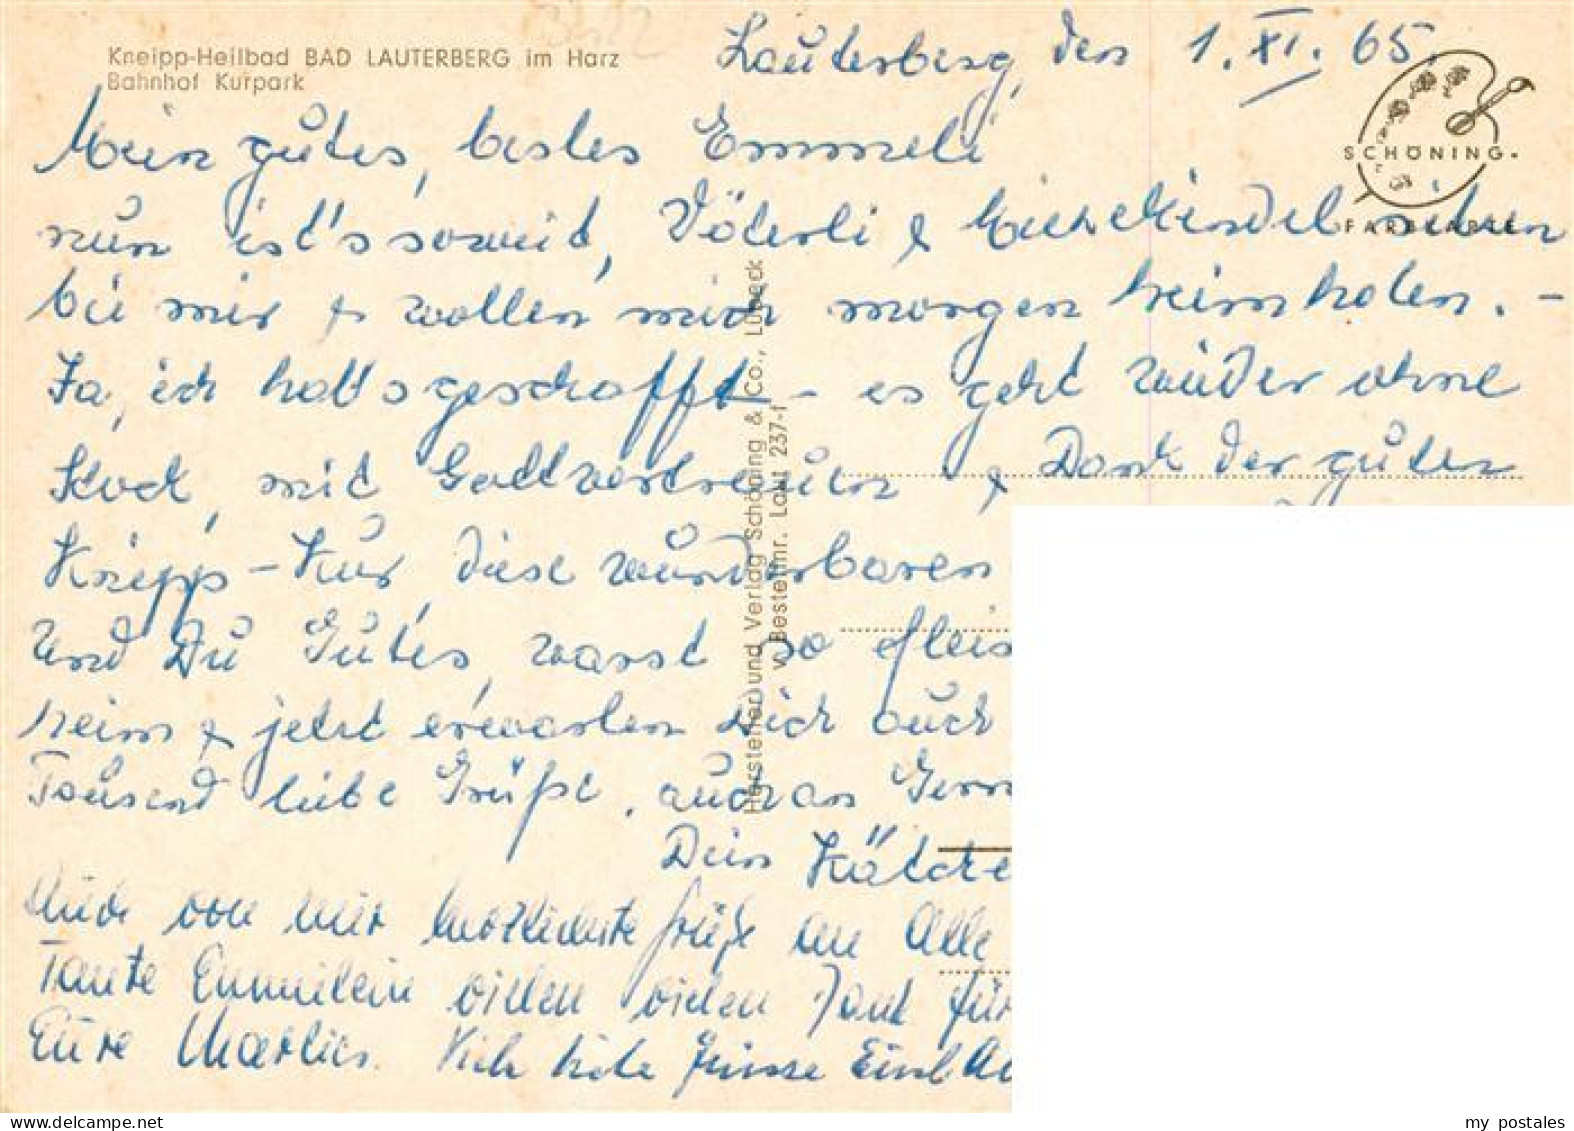 Kneipp-Heilbad BAD LAUTERBERG im Harz
Bahnhof Kurpark
Lauterberg, den 1. XI. 65.
SCHÖNING
Mein gutes, bestes Emmeli
nun ist's soweit, Väterli &
bei mir & wollen mich morgen heimholen. –
Ja, ich hatt's geschafft – es geht wieder ohne
Stock, mit Gottvertrauen & Dank der guten
Kneipp-Kur diese wunderbaren
Und Du Gutes, warst so fleis
heim & jetzt erwarten Dich auch
Tausend liebe Grüße, auch an
Dein Kätche
Auch von mir herzlichste Grüße an Alle
Tante Emmilein vielen vielen Dank für
Eure Marlies. Viele liebe Grüsse
Hersteller und Verlag Schöning & Co., Lübeck
v. Bestellnr. Laut 237-f
my postales